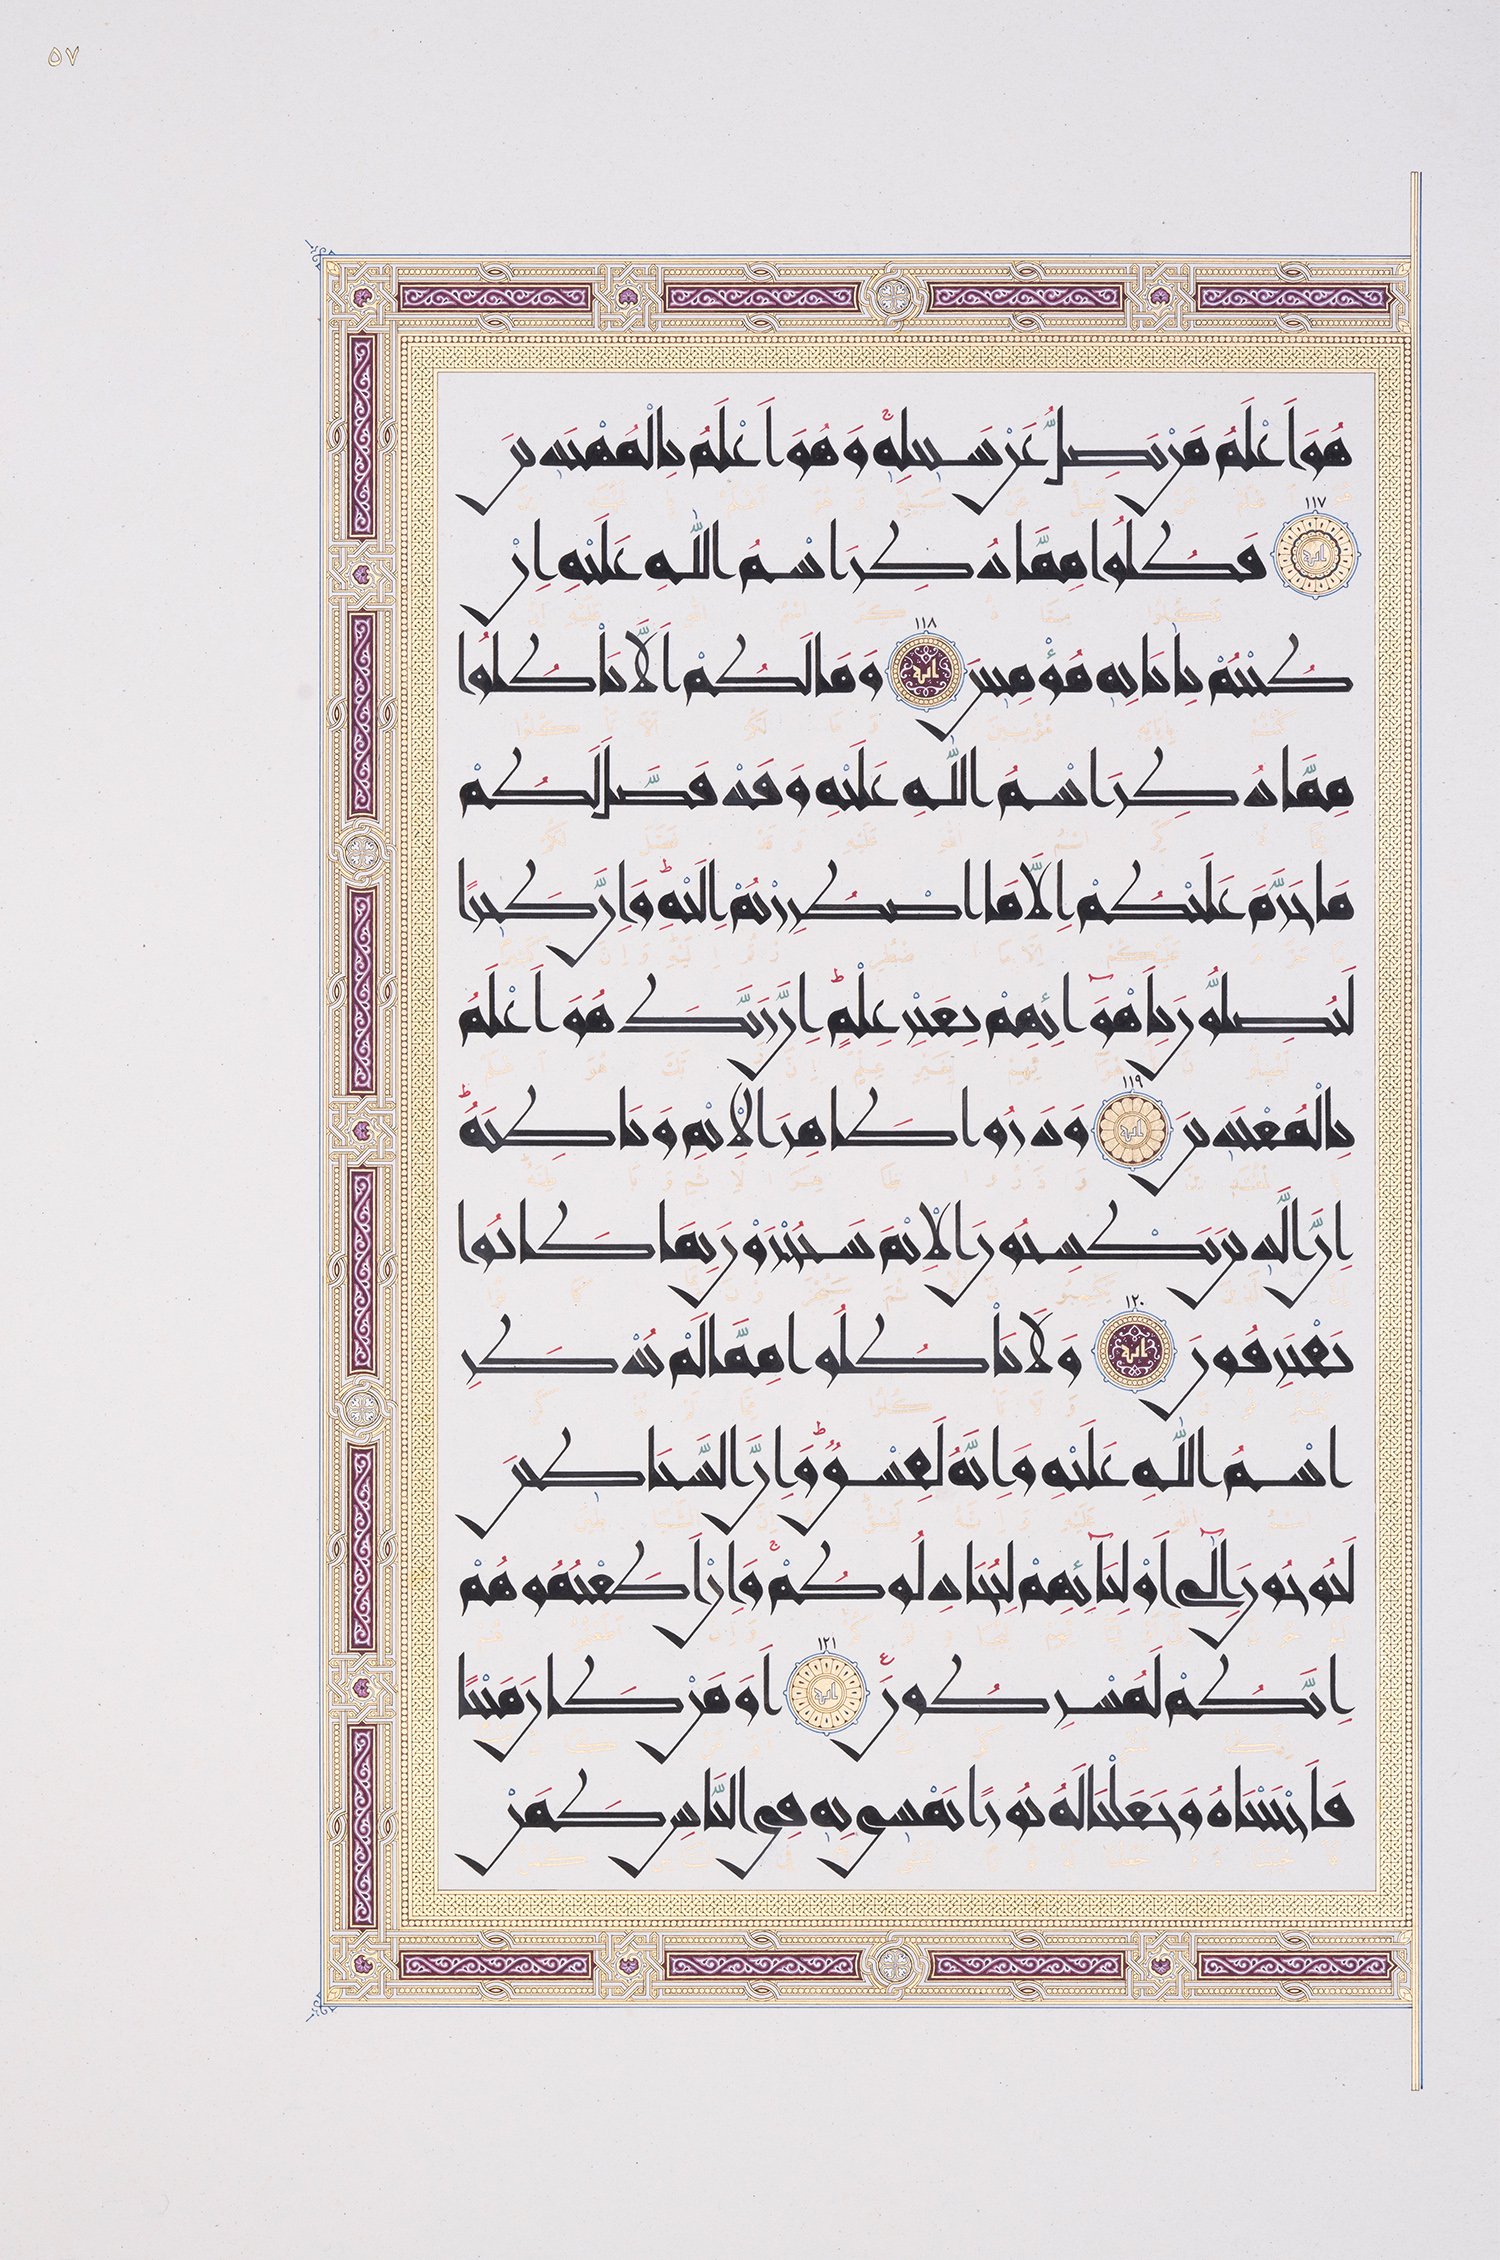 ٥٧
هُوَ أَعْلَمُ مَنْ يَضِلُّ عَنْ سَبِيلِهِ ۚ وَهُوَ أَعْلَمُ بِالْمُهْتَدِينَ
١١٧ فَكُلُوا مِمَّا ذُكِرَ اسْمُ اللَّهِ عَلَيْهِ إِنْ
كُنْتُمْ بِآيَاتِهِ مُؤْمِنِينَ ١١٨ وَمَا لَكُمْ أَلَّا تَأْكُلُوا
مِمَّا ذُكِرَ اسْمُ اللَّهِ عَلَيْهِ وَقَدْ فَصَّلَ لَكُمْ
مَا حَرَّمَ عَلَيْكُمْ إِلَّا مَا اضْطُرِرْتُمْ إِلَيْهِ ۗ وَإِنَّ كَثِيرًا
لَيُضِلُّونَ بِأَهْوَائِهِمْ بِغَيْرِ عِلْمٍ ۗ إِنَّ رَبَّكَ هُوَ أَعْلَمُ
بِالْمُعْتَدِينَ ١١٩ وَذَرُوا ظَاهِرَ الْإِثْمِ وَبَاطِنَهُ ۗ
إِنَّ الَّذِينَ يَكْسِبُونَ الْإِثْمَ سَيُجْزَوْنَ بِمَا كَانُوا
يَقْتَرِفُونَ ١٢٠ وَلَا تَأْكُلُوا مِمَّا لَمْ يُذْكَرِ
اسْمُ اللَّهِ عَلَيْهِ وَإِنَّهُ لَفِسْقٌ ۗ وَإِنَّ الشَّيَاطِينَ
لَيُوحُونَ إِلَىٰ أَوْلِيَائِهِمْ لِيُجَادِلُوكُمْ ۚ وَإِنْ أَطَعْتُمُوهُمْ
إِنَّكُمْ لَمُشْرِكُونَ ١٢١ أَوَمَنْ كَانَ مَيْتًا
فَأَحْيَيْنَاهُ وَجَعَلْنَا لَهُ نُورًا يَمْشِي بِهِ فِي النَّاسِ كَمَنْ